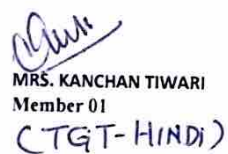 MRS. KANCHAN TIWARI
Member 01
(TGT-HINDi)